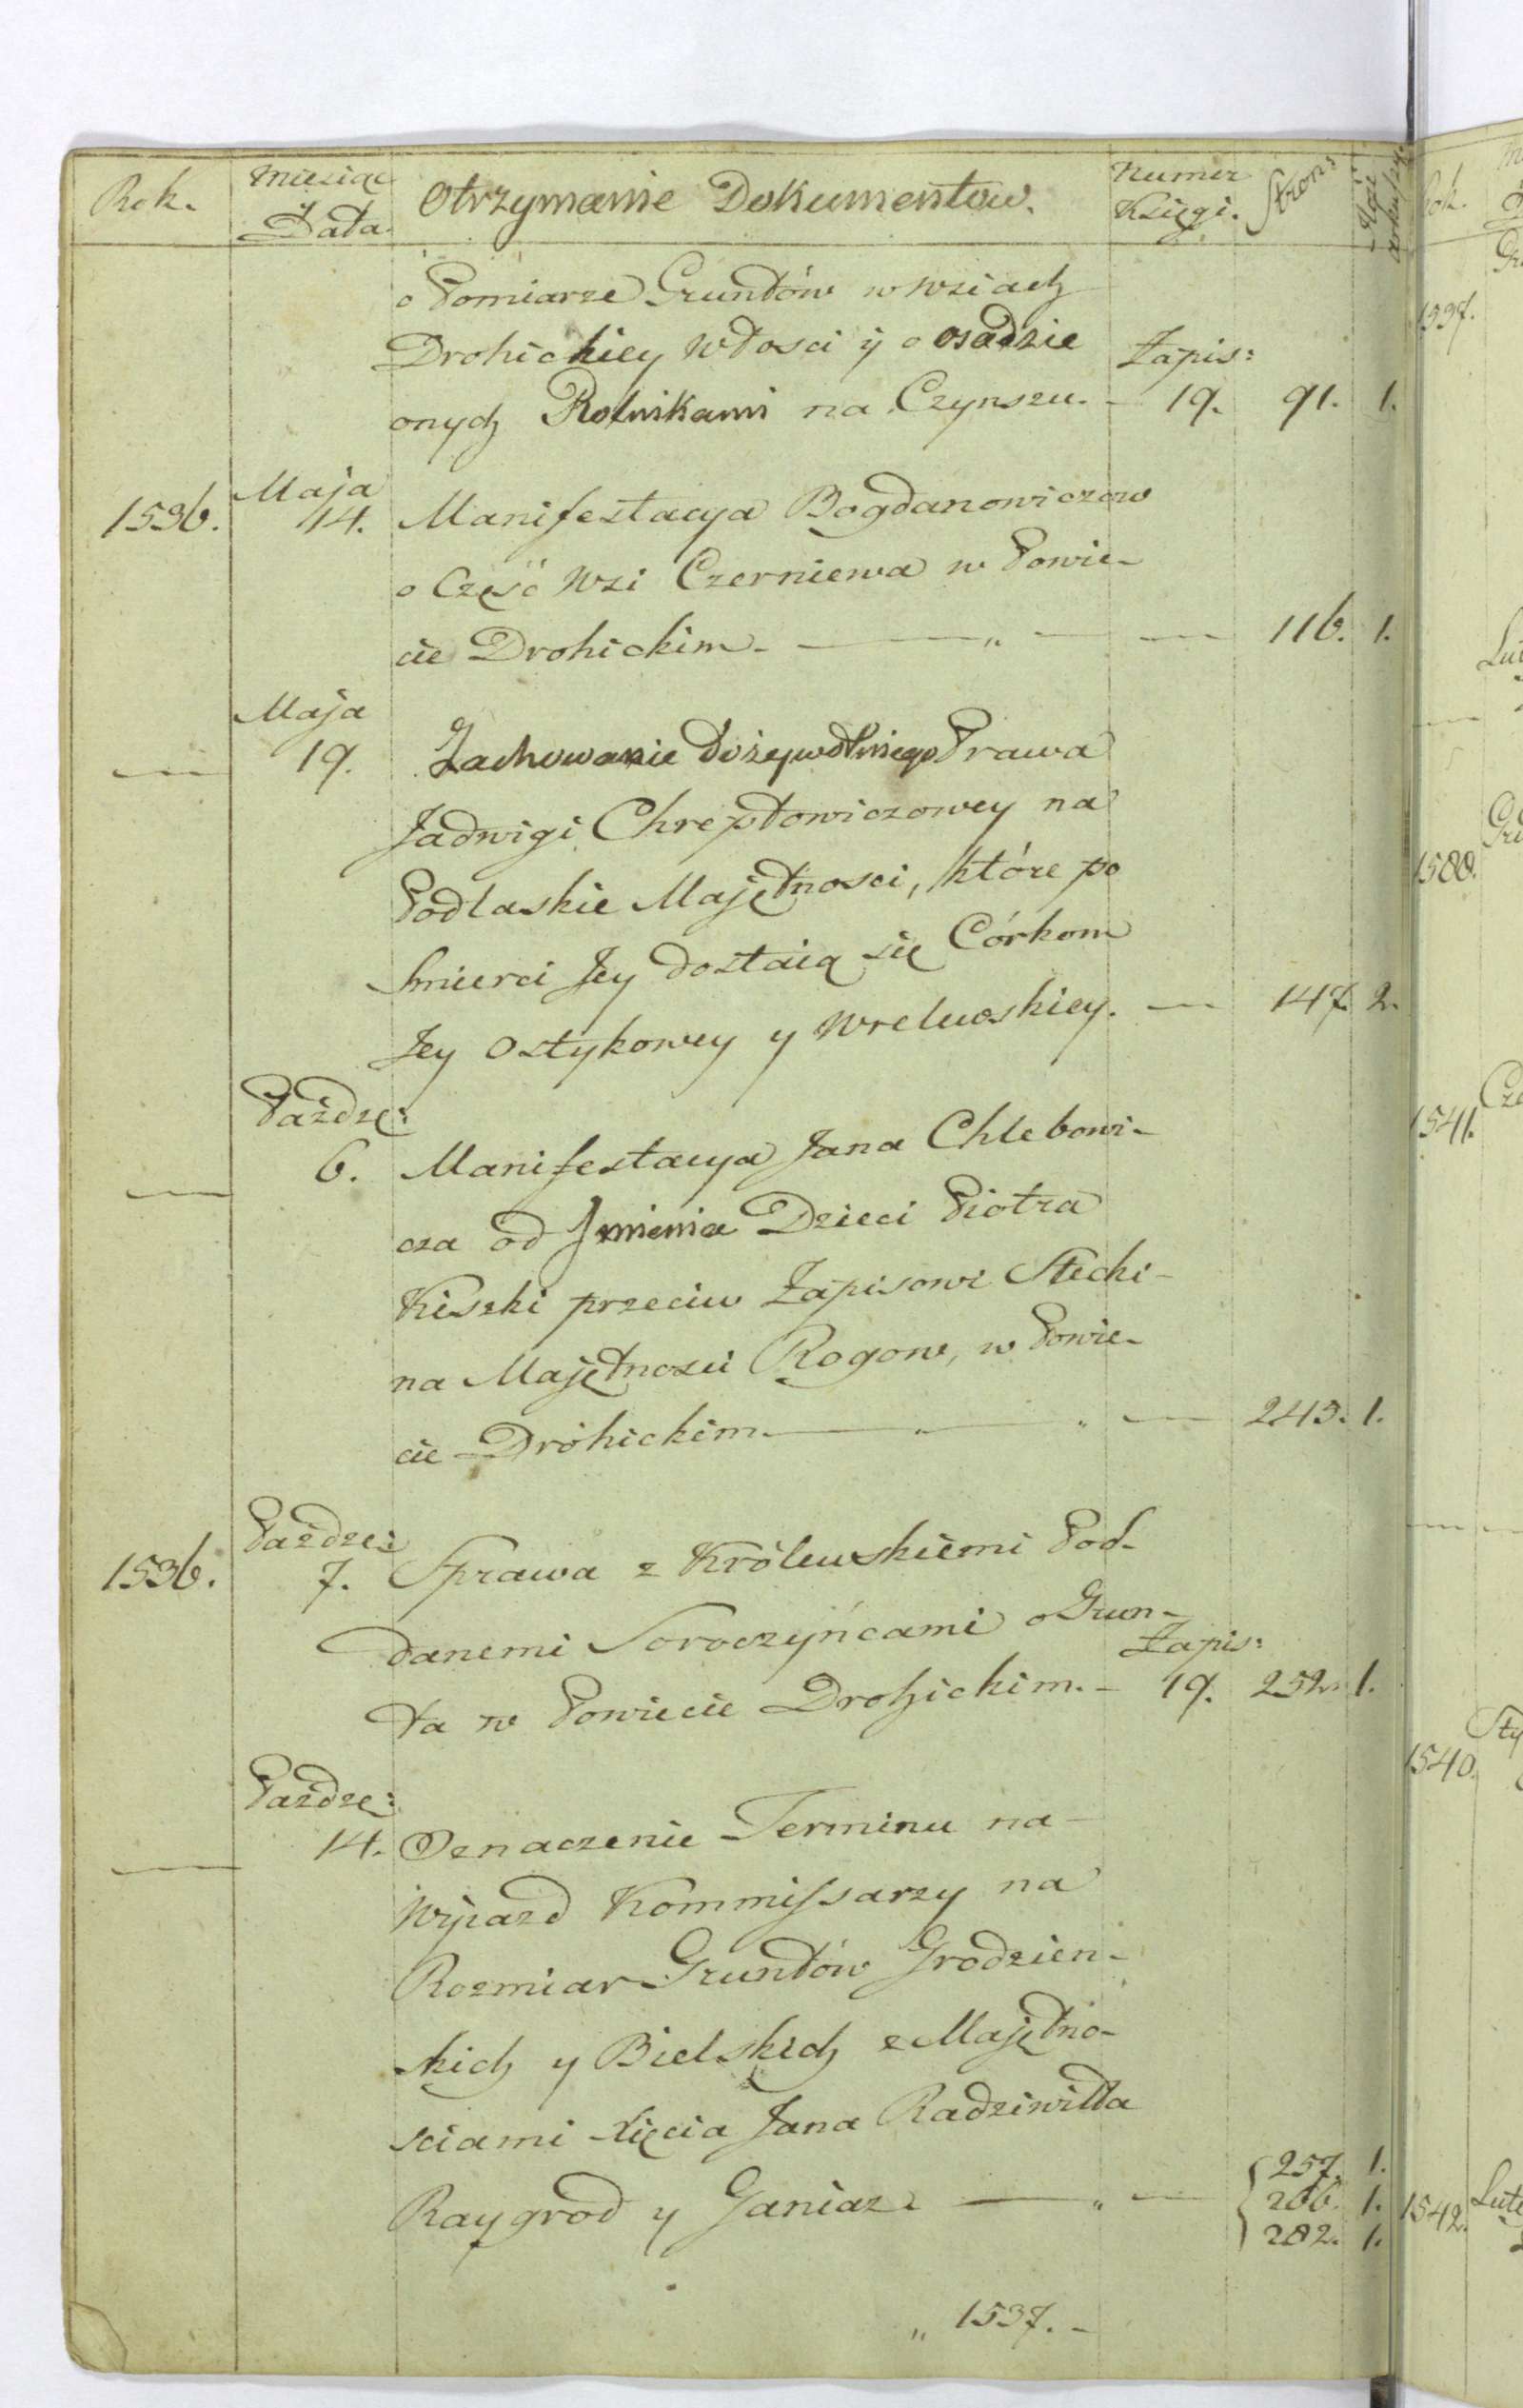 Rok. Miesiąc Data Otrzymanie Dokumentow. Numer Księgi. Stron:
o Pomiarze Gruntów w wsiach
Drohickiey Włosci ÿ o osadzie Zapis:
onych Rolnikami na Czynszu. - 19. 91. 1.
Maja
1536. 14. Manifestacya Bogdanowiczow
o Część Wsi Czerniewa w Powie-
cie Drohickim. — „ — — 116. 1.
Maja
— 19. Zachowanie dożywotniego Prawa
Jadwigi Chreptowiczowey na
Podlaskie Majętnosci, które po
Smierci Jey dostaią się Córkom
Jey Ostykowey y Wrelewskiey. — 147. 2.
Paźdze:
— 6. Manifestacya Jana Chlebowi-
cza od Jmienia Dzieci Piotra
Kiszki przeciw Zapisowi Stecki-
na Majętnosci Rogow, w Powie-
cie Drohickim. — „ — „ — 243. 1.
Paźdze:
1536. 7. Sprawa z Królewskiemi Pod-
danemi Soroczyńcami o Grun- Zapis:
ta w Powiecie Drohickim. - 19. 252. 1.
Paźdze:
— 14. Oznaczenie Terminu na
Wÿiazd Kommissarzy na
Rozmiar Gruntów Grodzien-
skich y Bielskich z Majętno-
sciami Xięcia Jana Radziwiłła
Raygrod y Ganiaz. — „ — { 257. 1.
266. 1.
282. 1.
„ 1537. -
Rok.
1537.
1541.
1540.
1542.